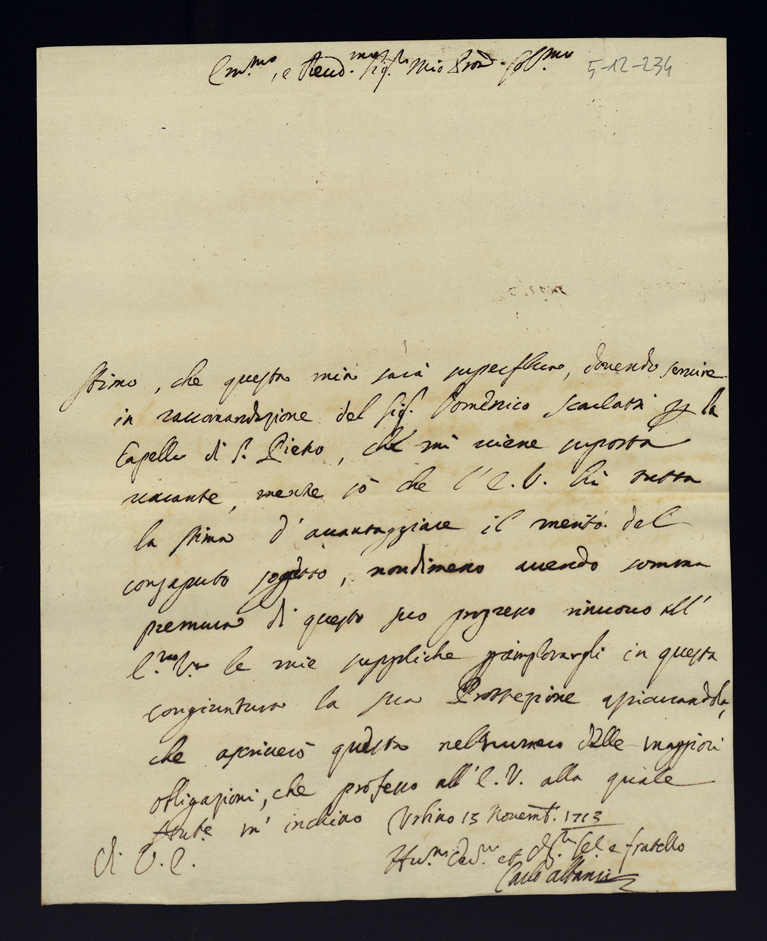 Em.mo, e Reud.mo Sig.r Mio Pron. Col.mo
5-12-234
Stimo, che questa mia sarà superflua, douendo seruire
in raccomandazione del Sig.r Domenico Scarlatti p la
Capella di S. Pietro, che mi uiene suposta
uacante, mentre sò che l'E. V. hà tutta
la stima d'auantaggiare il merito del
consaputo sogetto, nondimeno auendo somma
premura di questo suo progresso rinuouo all'
E.mza V.ra le mie suppliche p implorargli in questa
congiuntura la sua Prottezione assicurandola,
che ascriuerò questa nel numero delle maggiori
obligazioni, che professo all'E. V. alla quale
m'inchino Urbino 15 Nouemb. 1713
di V. E.
Hu.mo Deu.mo et Se.re e fratello
Carlo Albani